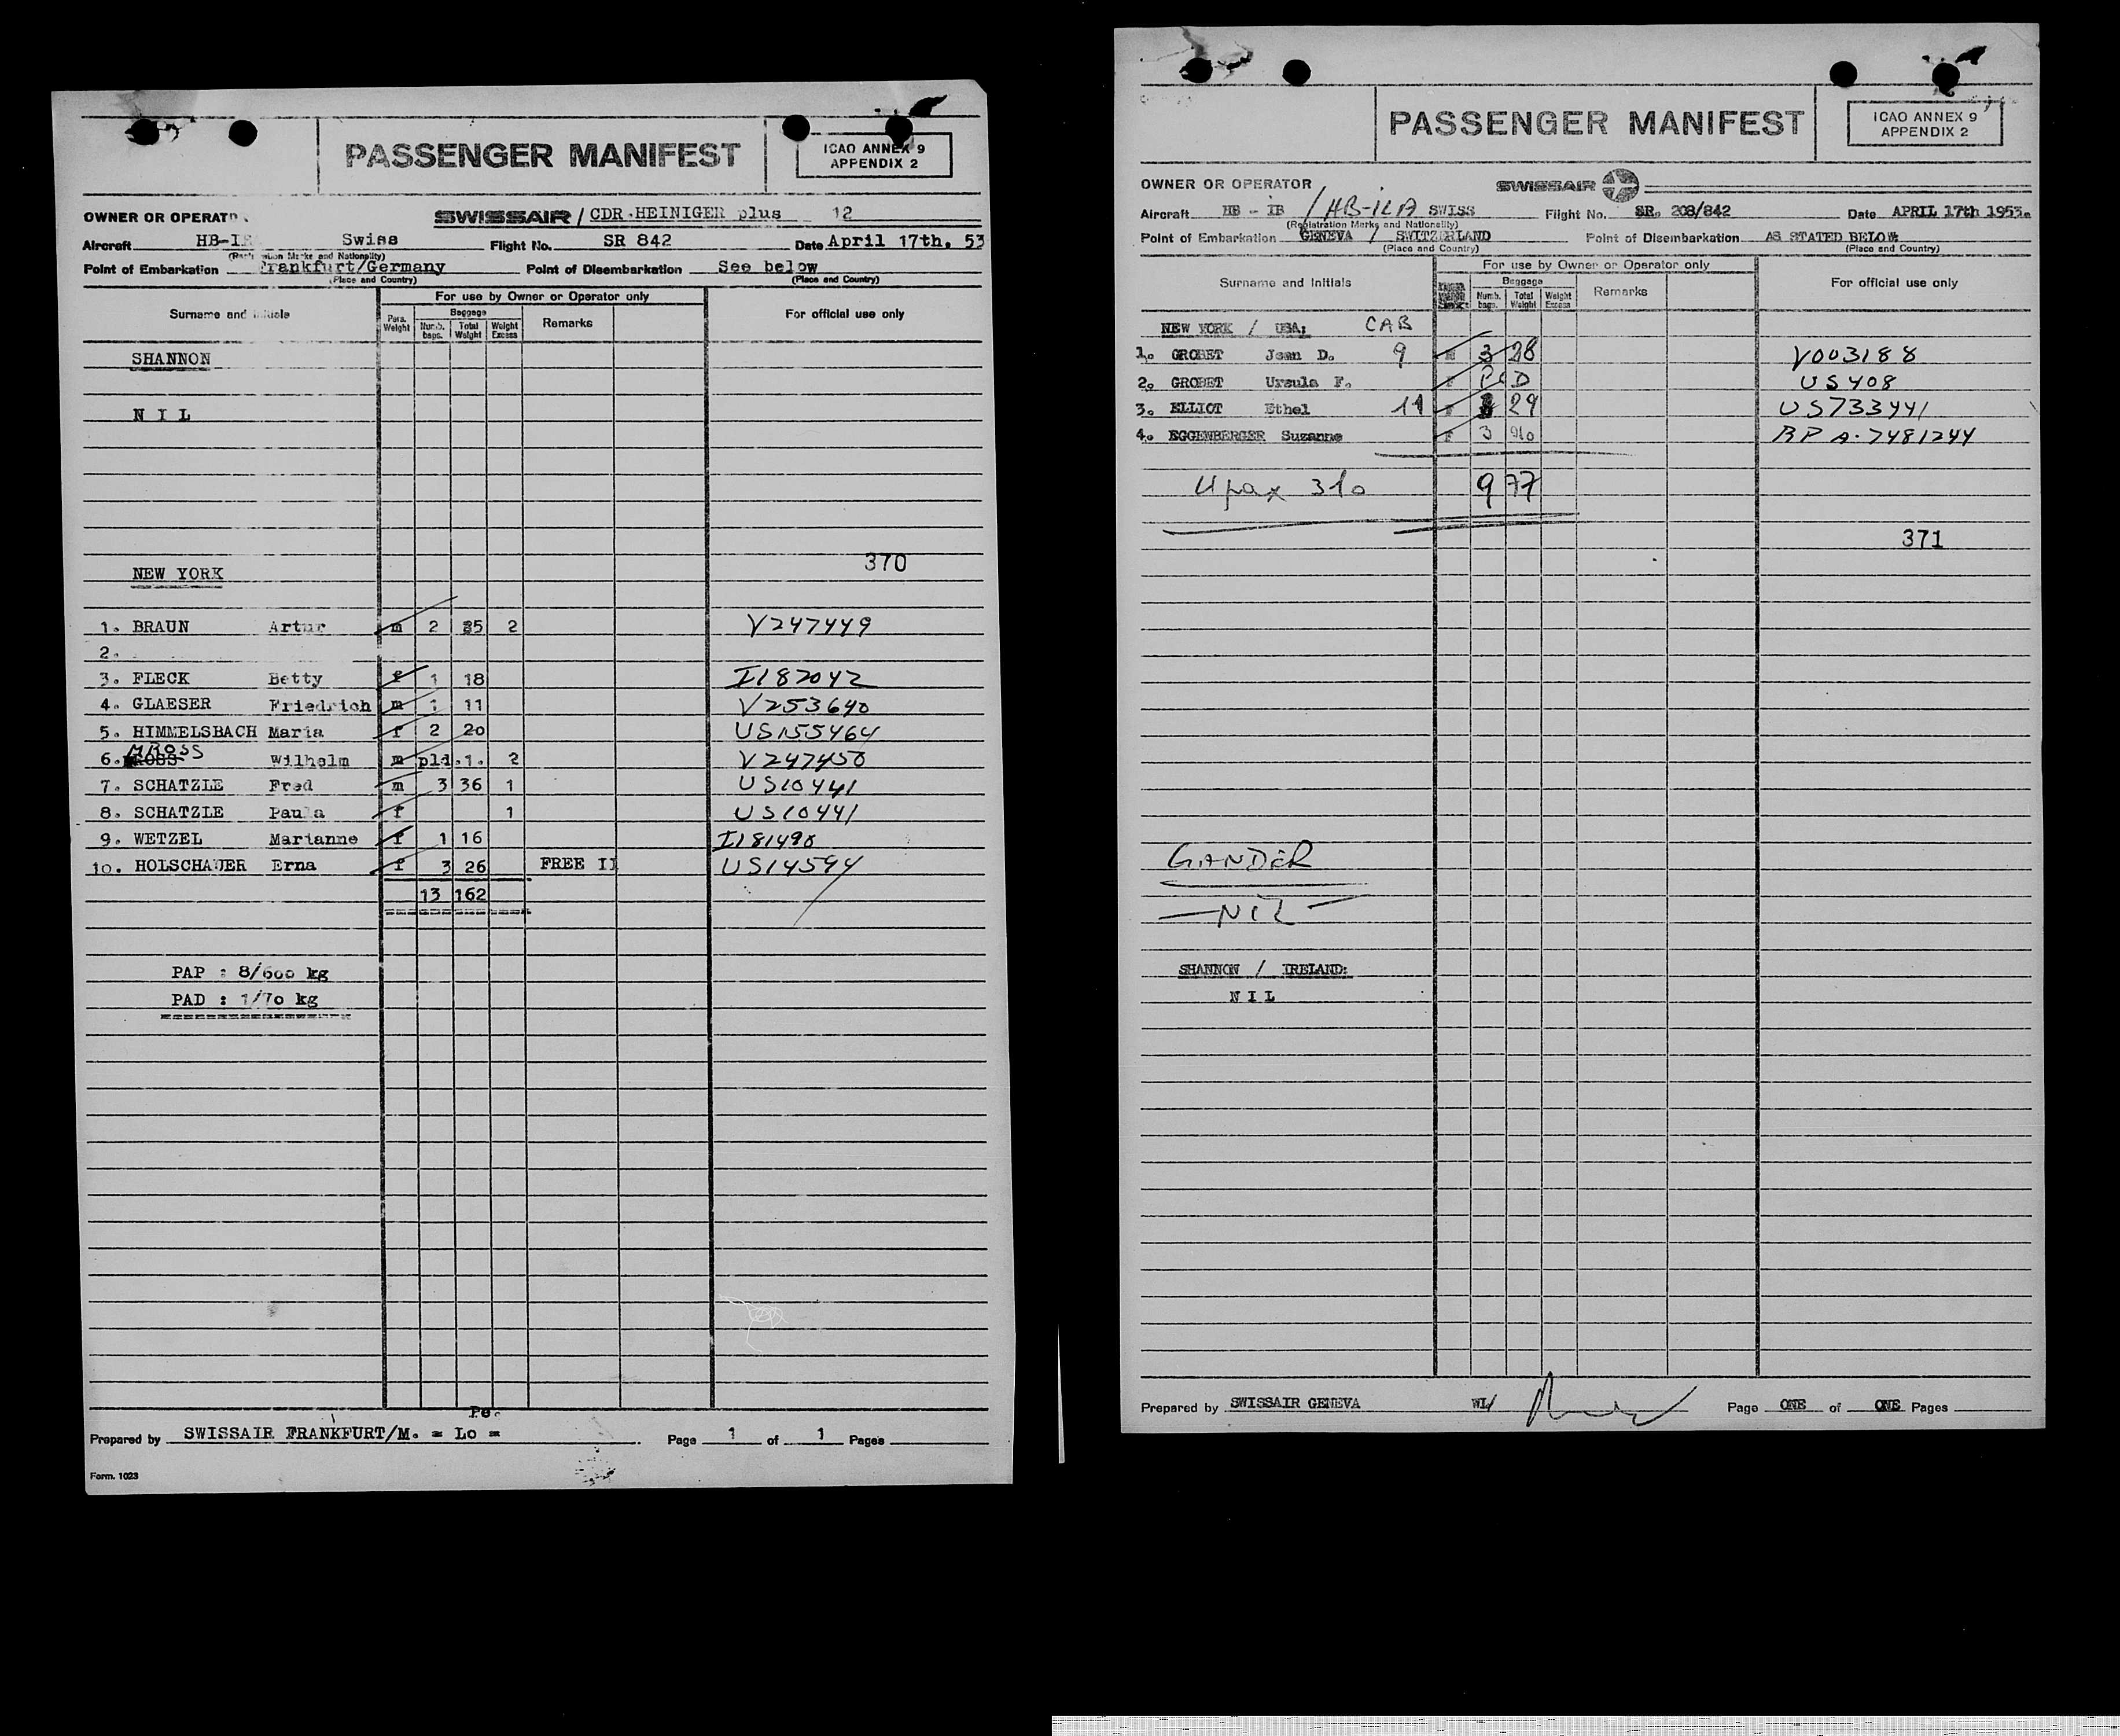 PASSENGER MANIFEST
ICAO ANNEX 9
APPENDIX 2
OWNER OR OPERAT
SWISSAIR / CDR.HEINIGER plus 12
Aircraft Swiss Flight No. SR 842 Date April 17th. 53
(Place and Country)
Point of Embarkation Frankfurt/Germany Point of Disembarkation See below
(Place and Country)
For use by Owner or Operator only
Surname and
Pers. Weight
Baggage
Numb. bags. Total Weight Weight Excess
Remarks
For official use only
SHANNON
N I L
370
NEW YORK
1. BRAUN Artur m 2 35 2 V247449
2.
3. FLECK Betty f 1 18 I182042
4. GLAESER Friedrich m 1 11 V253640
5. HIMMELSBACH Maria f 2 20 US155464
6. MROSS Wilhelm m pld.1. 2 V247450
7. SCHATZLE Fred m 3 36 1 US10441
8. SCHATZLE Paula f 1 US10441
9. WETZEL Marianne f 1 16 I181490
10. HOLSCHAUER Erna f 3 26 FREE II US14594
13 162
PAP : 8/600 kg
PAD : 1/70 kg
Pe.
Prepared by SWISSAIR FRANKFURT/M. = Lo = Page 1 of 1 Pages
Form. 1023
PASSENGER MANIFEST
ICAO ANNEX 9
APPENDIX 2
OWNER OR OPERATOR SWISSAIR
Aircraft HB - IB / HB-ILA SWISS Flight No. SR. 208/842 Date APRIL 17th 1953.
(Registration Marks and Nationality)
Point of Embarkation GENEVA / SWITZERLAND Point of Disembarkation AS STATED BELOW:
(Place and Country) (Place and Country)
For use by Owner or Operator only
Surname and Initials
Baggage
Numb. bags. Total Weight Weight Excess
Remarks
For official use only
NEW YORK / USA: CAB
1. GROBET Jean D. 9 M 3 28 V003188
2. GROBET Ursula F. F US408
3. ELLIOT Ethel 11 F 3 29 US733441
4. EGGENBERGER Suzanne F 3 RP A.7481244
4 pax 310 9 77
371
GANDER
NIL
SHANNON / IRELAND:
N I L
Prepared by SWISSAIR GENEVA WL/ Page ONE of ONE Pages